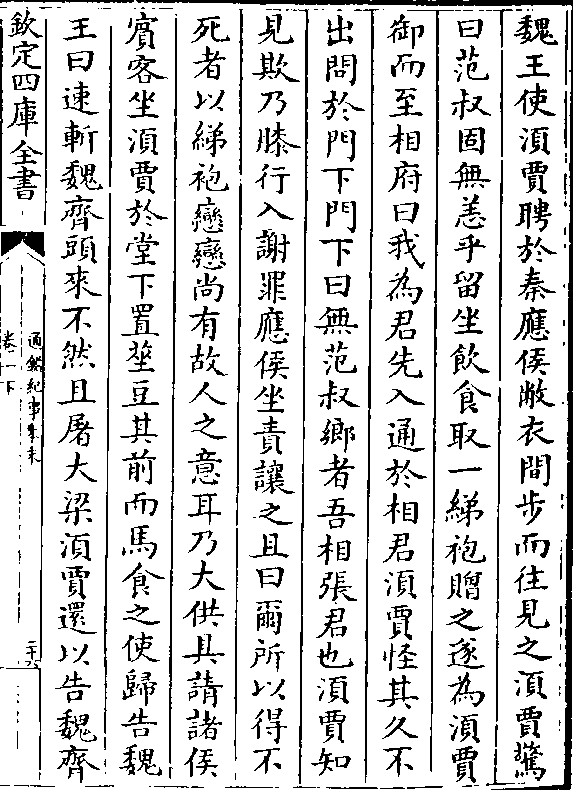 魏王使湏賈聘於秦應侯敝衣間步而往見之湏賈驚
曰范叔固無恙乎留坐飲食取一綈袍贈之遂為湏賈
御而至相府曰我為君先入通於相君湏賈怪其久不
出問於門下門下曰無范叔鄉者吾相張君也湏賈知
見欺乃膝行入謝罪應侯坐責讓之且曰爾所以得不
死者以綈袍戀戀尚有故人之意耳乃大供具請諸侯
賔客坐湏賈於堂下置莝豆其前而馬食之使歸告魏
王曰速斬魏齊頭來不然且屠大梁湏賈還以告魏齊
欽定四庫全書
通鑑紀事本末
卷一下
二十六